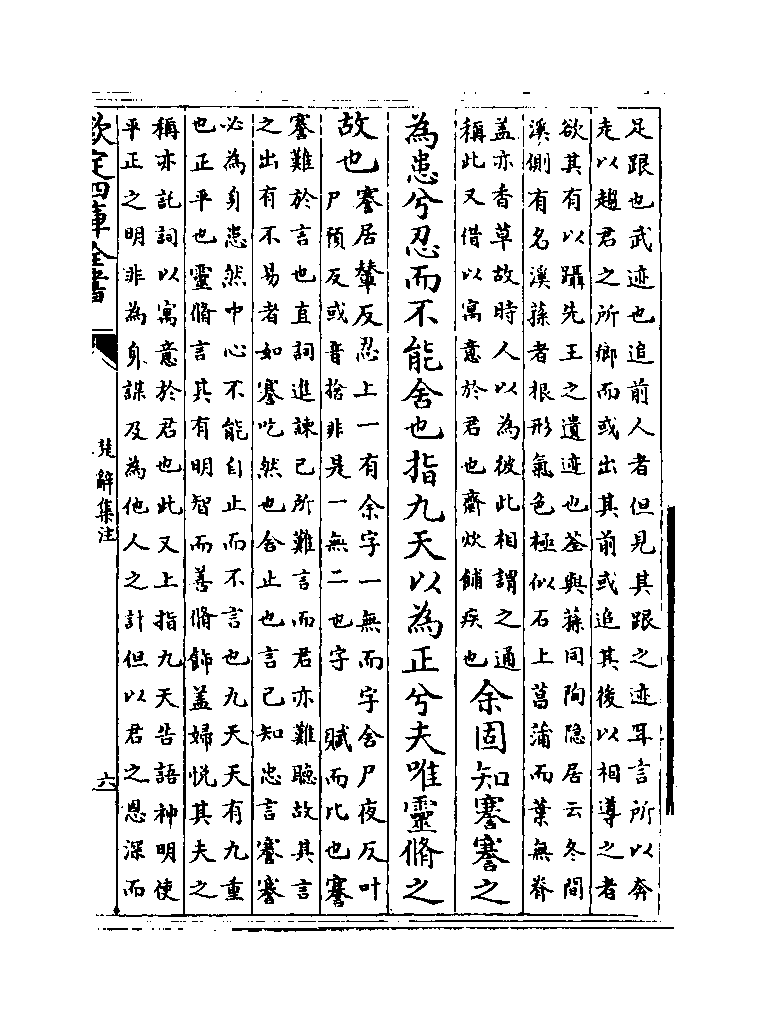 足跟也武迹也追前人者但見其跟之迹耳言所以奔
走以趨君之所鄉而或出其前或追其後以相導之者
欲其有以躡先王之遺迹也荃與蓀同陶隐居云冬間
溪側有名溪蓀者根形氣色極似石上菖蒲而葉無脊
盖亦香草故時人以為彼此相謂之通
稱此又借以寓意於君也齌炊餔疾也
余固知謇謇之
為患兮忍而不能舍也指九天以為正兮夫唯靈脩之
故也
謇居輦反忍上一有余字一無而字舍尸夜反叶
尸預反或音捨非是一無二也字　賦而比也謇
謇難於言也直詞進諫己所難言而君亦難聽故其言
之出有不易者如謇吃然也舍止也言己知忠言謇謇
必為身患然中心不能自止而不言也九天天有九重
也正平也靈脩言其有明智而善脩飾盖婦悦其夫之
稱亦託詞以寓意於君也此又上指九天告語神明使
平正之明非為身謀及為他人之計但以君之恩深而
欽定四庫全書
楚辭集注
六